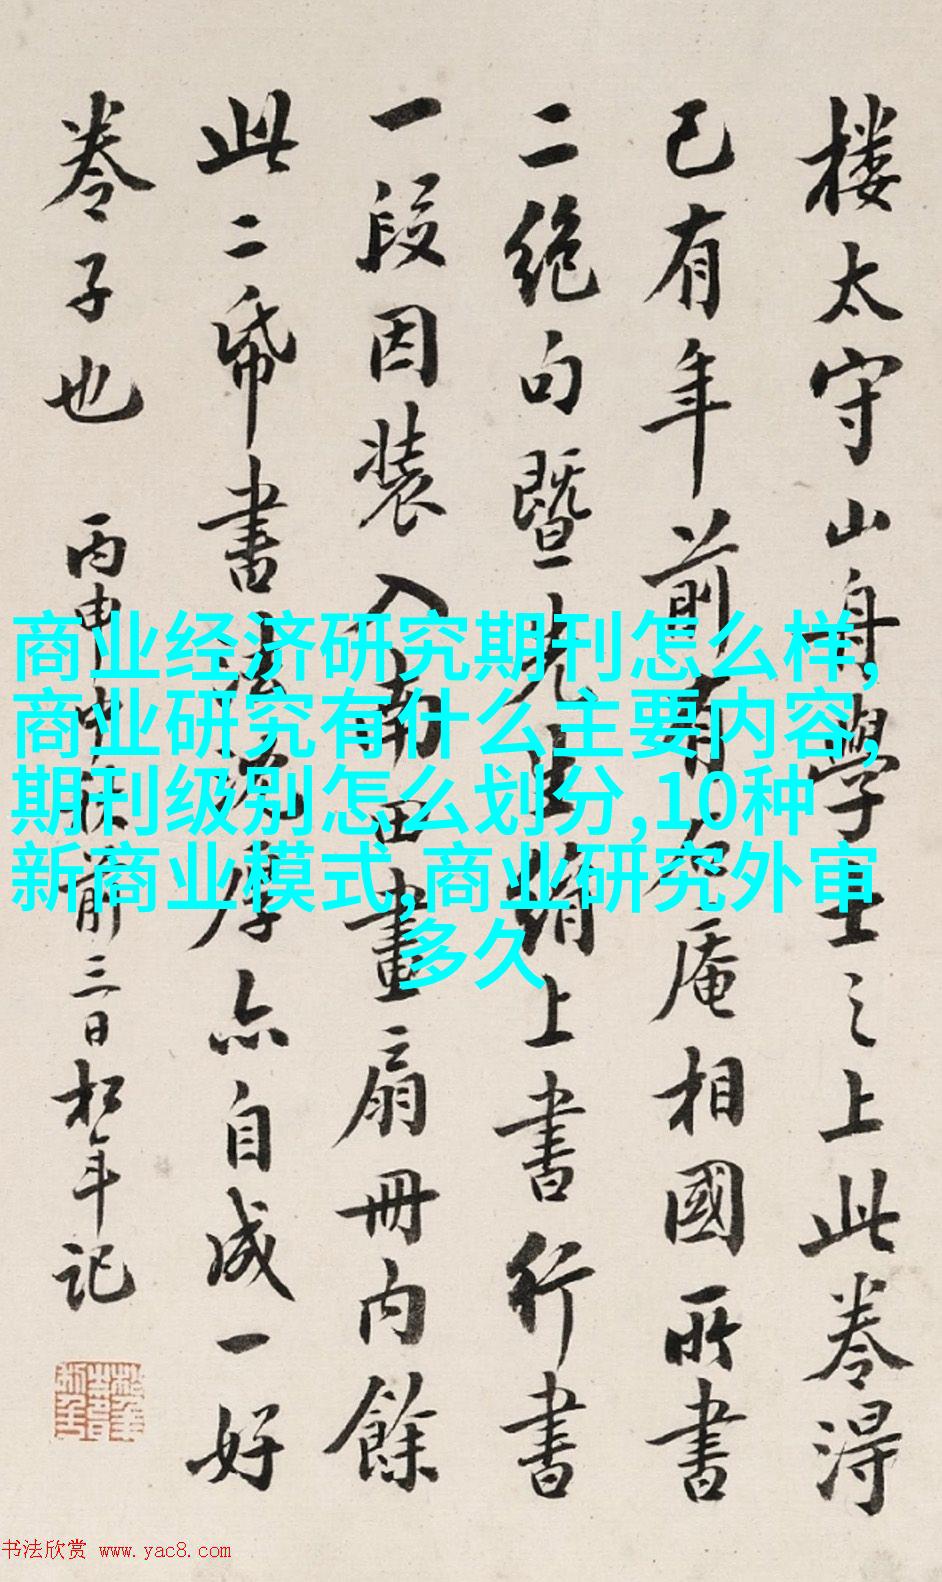 楼太守山舟學士之上此卷淂
已有年前有庵相國所書
二绝句暨先生絹上書行書
一段因裝入南田畫扇冊内餘
此二帋書法厚亦自成一好
卷子也 丙申中秋前三日松年記
商业经济研究期刊怎么样,
商业研究有什么主要内容,
期刊级别怎么划分,10种
新商业模式,商业研究外审
多久
书法欣赏 www.yac8.com